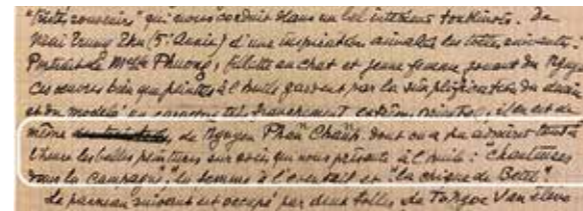 "Tristes souvenirs" qui nous conduit dans un bel intérieur tonkinois. De
Mai Trung Thu (5e année) d'une inspiration les toiles suivantes.
Portrait de Mlle Phuong, fillette au chat et jeune femme jouant du Nguyet
Ces œuvres bien que peintes à l'huile gardent par la simplification du dessin
et du modelé un caractère très franchement extrême oriental, il en est de
même de Nguyen Phan Chanh dont on a pu admirer tout à
l'heure les belles peintures sur soie qui nous présente à l'huile : "chanteuses
dans la campagne" la femme à l'éventail et "la chique de Betel"
Le panneau suivant est occupé par deux toiles de To Ngoc Van élève